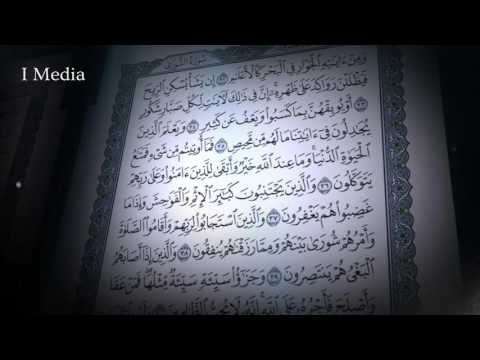 سُورَةُ الشُّورَىٰ
I Media
وَمِنْ ءَايَٰتِهِ ٱلْجَوَارِ فِى ٱلْبَحْرِ كَٱلْأَعْلَٰمِ ٣٢ إِن يَشَأْ يُسْكِنِ ٱلرِّيحَ
فَيَظْلَلْنَ رَوَاكِدَ عَلَىٰ ظَهْرِهِۦٓ إِنَّ فِى ذَٰلِكَ لَءَايَٰتٍ لِّكُلِّ صَبَّارٍ شَكُورٍ
٣٣ أَوْ يُوبِقْهُنَّ بِمَا كَسَبُوا۟ وَيَعْفُ عَن كَثِيرٍ ٣٤ وَيَعْلَمَ ٱلَّذِينَ
يُجَٰدِلُونَ فِىٓ ءَايَٰتِنَا مَا لَهُم مِّن مَّحِيصٍ ٣٥ فَمَآ أُوتِيتُم مِّن شَىْءٍ فَمَتَٰعُ
ٱلْحَيَوٰةِ ٱلدُّنْيَا وَمَا عِندَ ٱللَّهِ خَيْرٌ وَأَبْقَىٰ لِلَّذِينَ ءَامَنُوا۟ وَعَلَىٰ رَبِّهِمْ
يَتَوَكَّلُونَ ٣٦ وَٱلَّذِينَ يَجْتَنِبُونَ كَبَٰٓئِرَ ٱلْإِثْمِ وَٱلْفَوَٰحِشَ وَإِذَا مَا
غَضِبُوا۟ هُمْ يَغْفِرُونَ ٣٧ وَٱلَّذِينَ ٱسْتَجَابُوا۟ لِرَبِّهِمْ وَأَقَامُوا۟ ٱلصَّلَوٰةَ
وَأَمْرُهُمْ شُورَىٰ بَيْنَهُمْ وَمِمَّا رَزَقْنَٰهُمْ يُنفِقُونَ ٣٨ وَٱلَّذِينَ إِذَآ أَصَابَهُمُ
ٱلْبَغْىُ هُمْ يَنتَصِرُونَ ٣٩ وَجَزَٰٓؤُا۟ سَيِّئَةٍ سَيِّئَةٌ مِّثْلُهَا فَمَنْ عَفَا
وَأَصْلَحَ فَأَجْرُهُۥ عَلَى ٱللَّهِ إِنَّهُۥ لَا يُحِبُّ ٱلظَّٰلِمِينَ